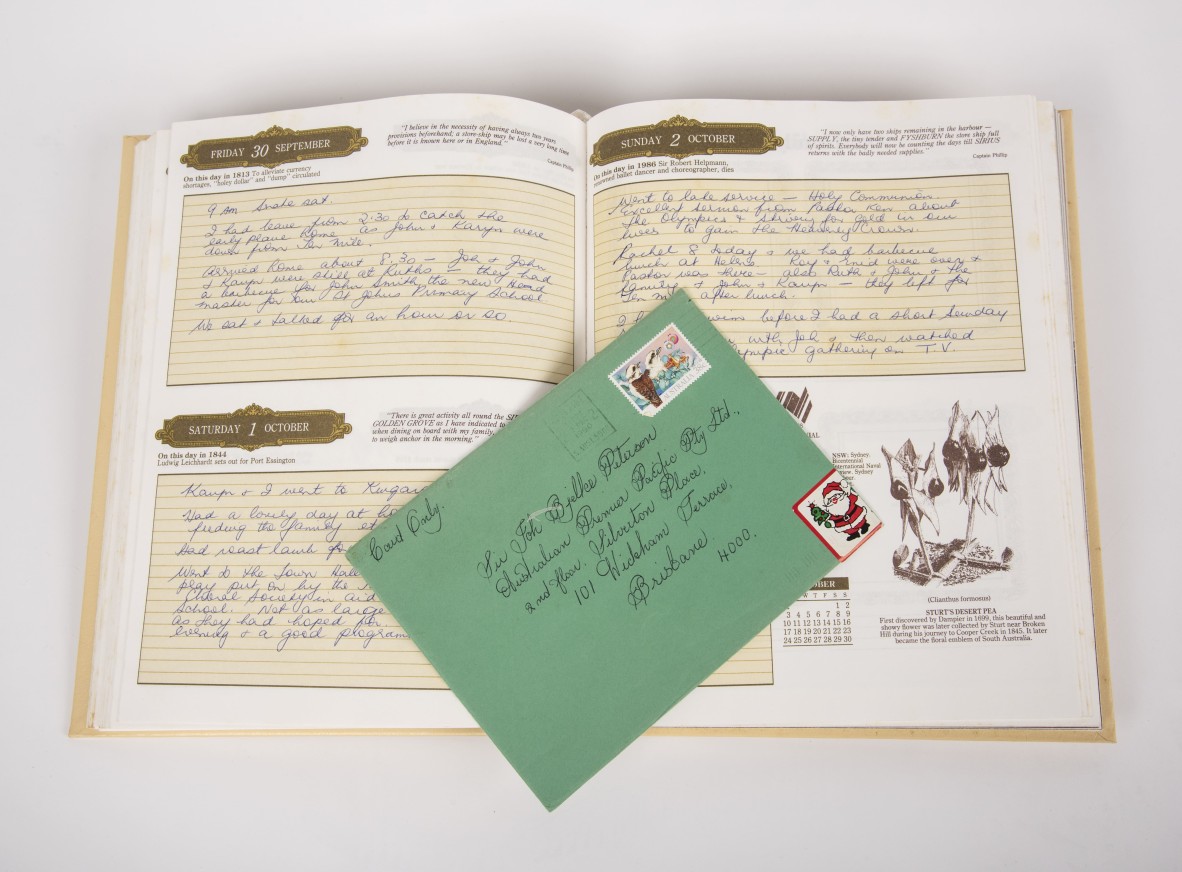 FRIDAY 30 SEPTEMBER
"I believe in the necessity of having always two years
provisions beforehand; a store-ship may be lost a very long time
before it is known here or in England."
Captain Phillip
On this day in 1813 To alleviate currency
shortages, "holey dollar" and "dump" circulated
9 am Senate sat.
I had leave from 2:30 to catch the
early plane home as John & Karyn were
down from Ten Mile.
Arrived home about 8.30 — Joh & John
& Karyn were still at Ruths — they had
a barbecue for John Smith the new Head
master for our St Johns Primary School.
We sat & talked for an hour or so.
SATURDAY 1 OCTOBER
"There is great activity all round the
GOLDEN GROVE as I have indicated to
when dining on board with my family
to weigh anchor in the morning."
On this day in 1844
Ludwig Leichhardt sets out for Port Essington
Karyn & I went to
Had a lovely day at
feeding the family
Had roast lamb
Went to the Town
play put on by the
Choral Society in aid
School. Not as large
as they had hoped for.
evening & a good
SUNDAY 2 OCTOBER
"I now only have two ships remaining in the harbour —
SUPPLY, the tiny tender and FYSHBURN the store ship full
of spirits. Everybody will now be counting the days till SIRIUS
returns with the badly needed supplies."
Captain Phillip
On this day in 1986 Sir Robert Helpmann,
renowned ballet dancer and choreographer, dies
Went to late service — Holy Communion.
Excelent sermon from Pastor Ken about
the Olympics & striving for Gold in our
lives to gain the Heavenly Crown.
Rachel 8 today & we had barbecue
lunch at Helens were over &
Pastor was there — also Ruth & John & the
family & John & Karyn — they left for
Ten after lunch.
before I had a short Sunday
with Joh & then watched
gathering on T.V.
NSW: Sydney.
Bicentennial
International Naval
Sydney
M T W T F S S
1 2
3 4 5 6 7 8 9
10 11 12 13 14 15 16
17 18 19 20 21 22 23
24 25 26 27 28 29 30
(Clianthus formosus)
STURT'S DESERT PEA
First discovered by Dampier in 1699, this beautiful and
showy flower was later collected by Sturt near Broken
Hill during his journey to Cooper Creek in 1845. It later
became the floral emblem of South Australia.
Card Only.
AUSTRALIA
Sir Joh Bjelke Peterson
Australian Premier Pacific Pty Ltd.,
2nd floor, Silverton Place,
101 Wickham Terrace,
Brisbane 4000.